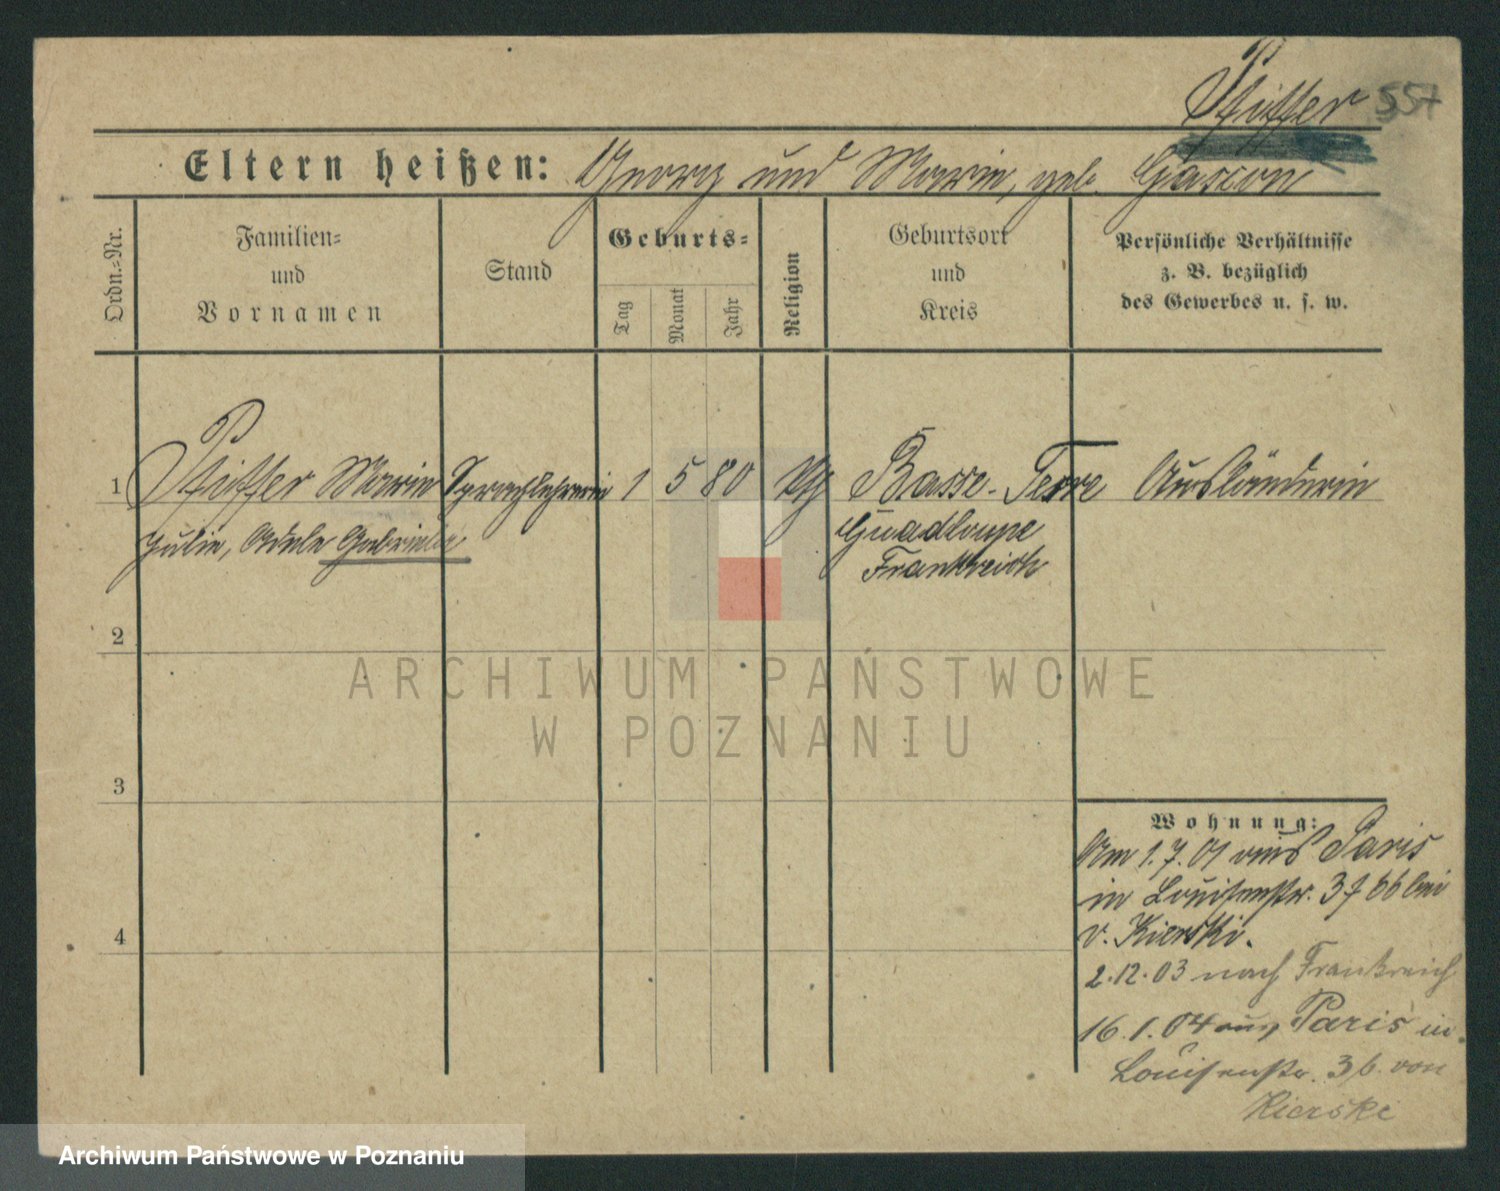 Pfeiffer 557
Eltern heißen: Georg und Marie, geb. Gascon
Ordn.-Nr.
Familien-
und
Vornamen
Stand
Geburts-
Tag
Monat
Jahr
Religion
Geburtsort
und
Kreis
Persönliche Verhältnisse
z. B. bezüglich
des Gewerbes u. s. w.
1 Pfeiffer Marie Sprachlehrerin 1 5 80 Basse-Terre Ausländerin
Julie, Adele Gabriele Guadloupe
Frankreich
2
ARCHIWUM PAŃSTWOWE
W POZNANIU
3
Wohnung:
Am 1.7.01 aus Paris
in Louisenstr. bei
v. Kierski.
4
2.12.03 nach Frankreich
16.1.04 aus Paris in
Louisenstr. 3 b. von
Kierski
Archiwum Państwowe w Poznaniu